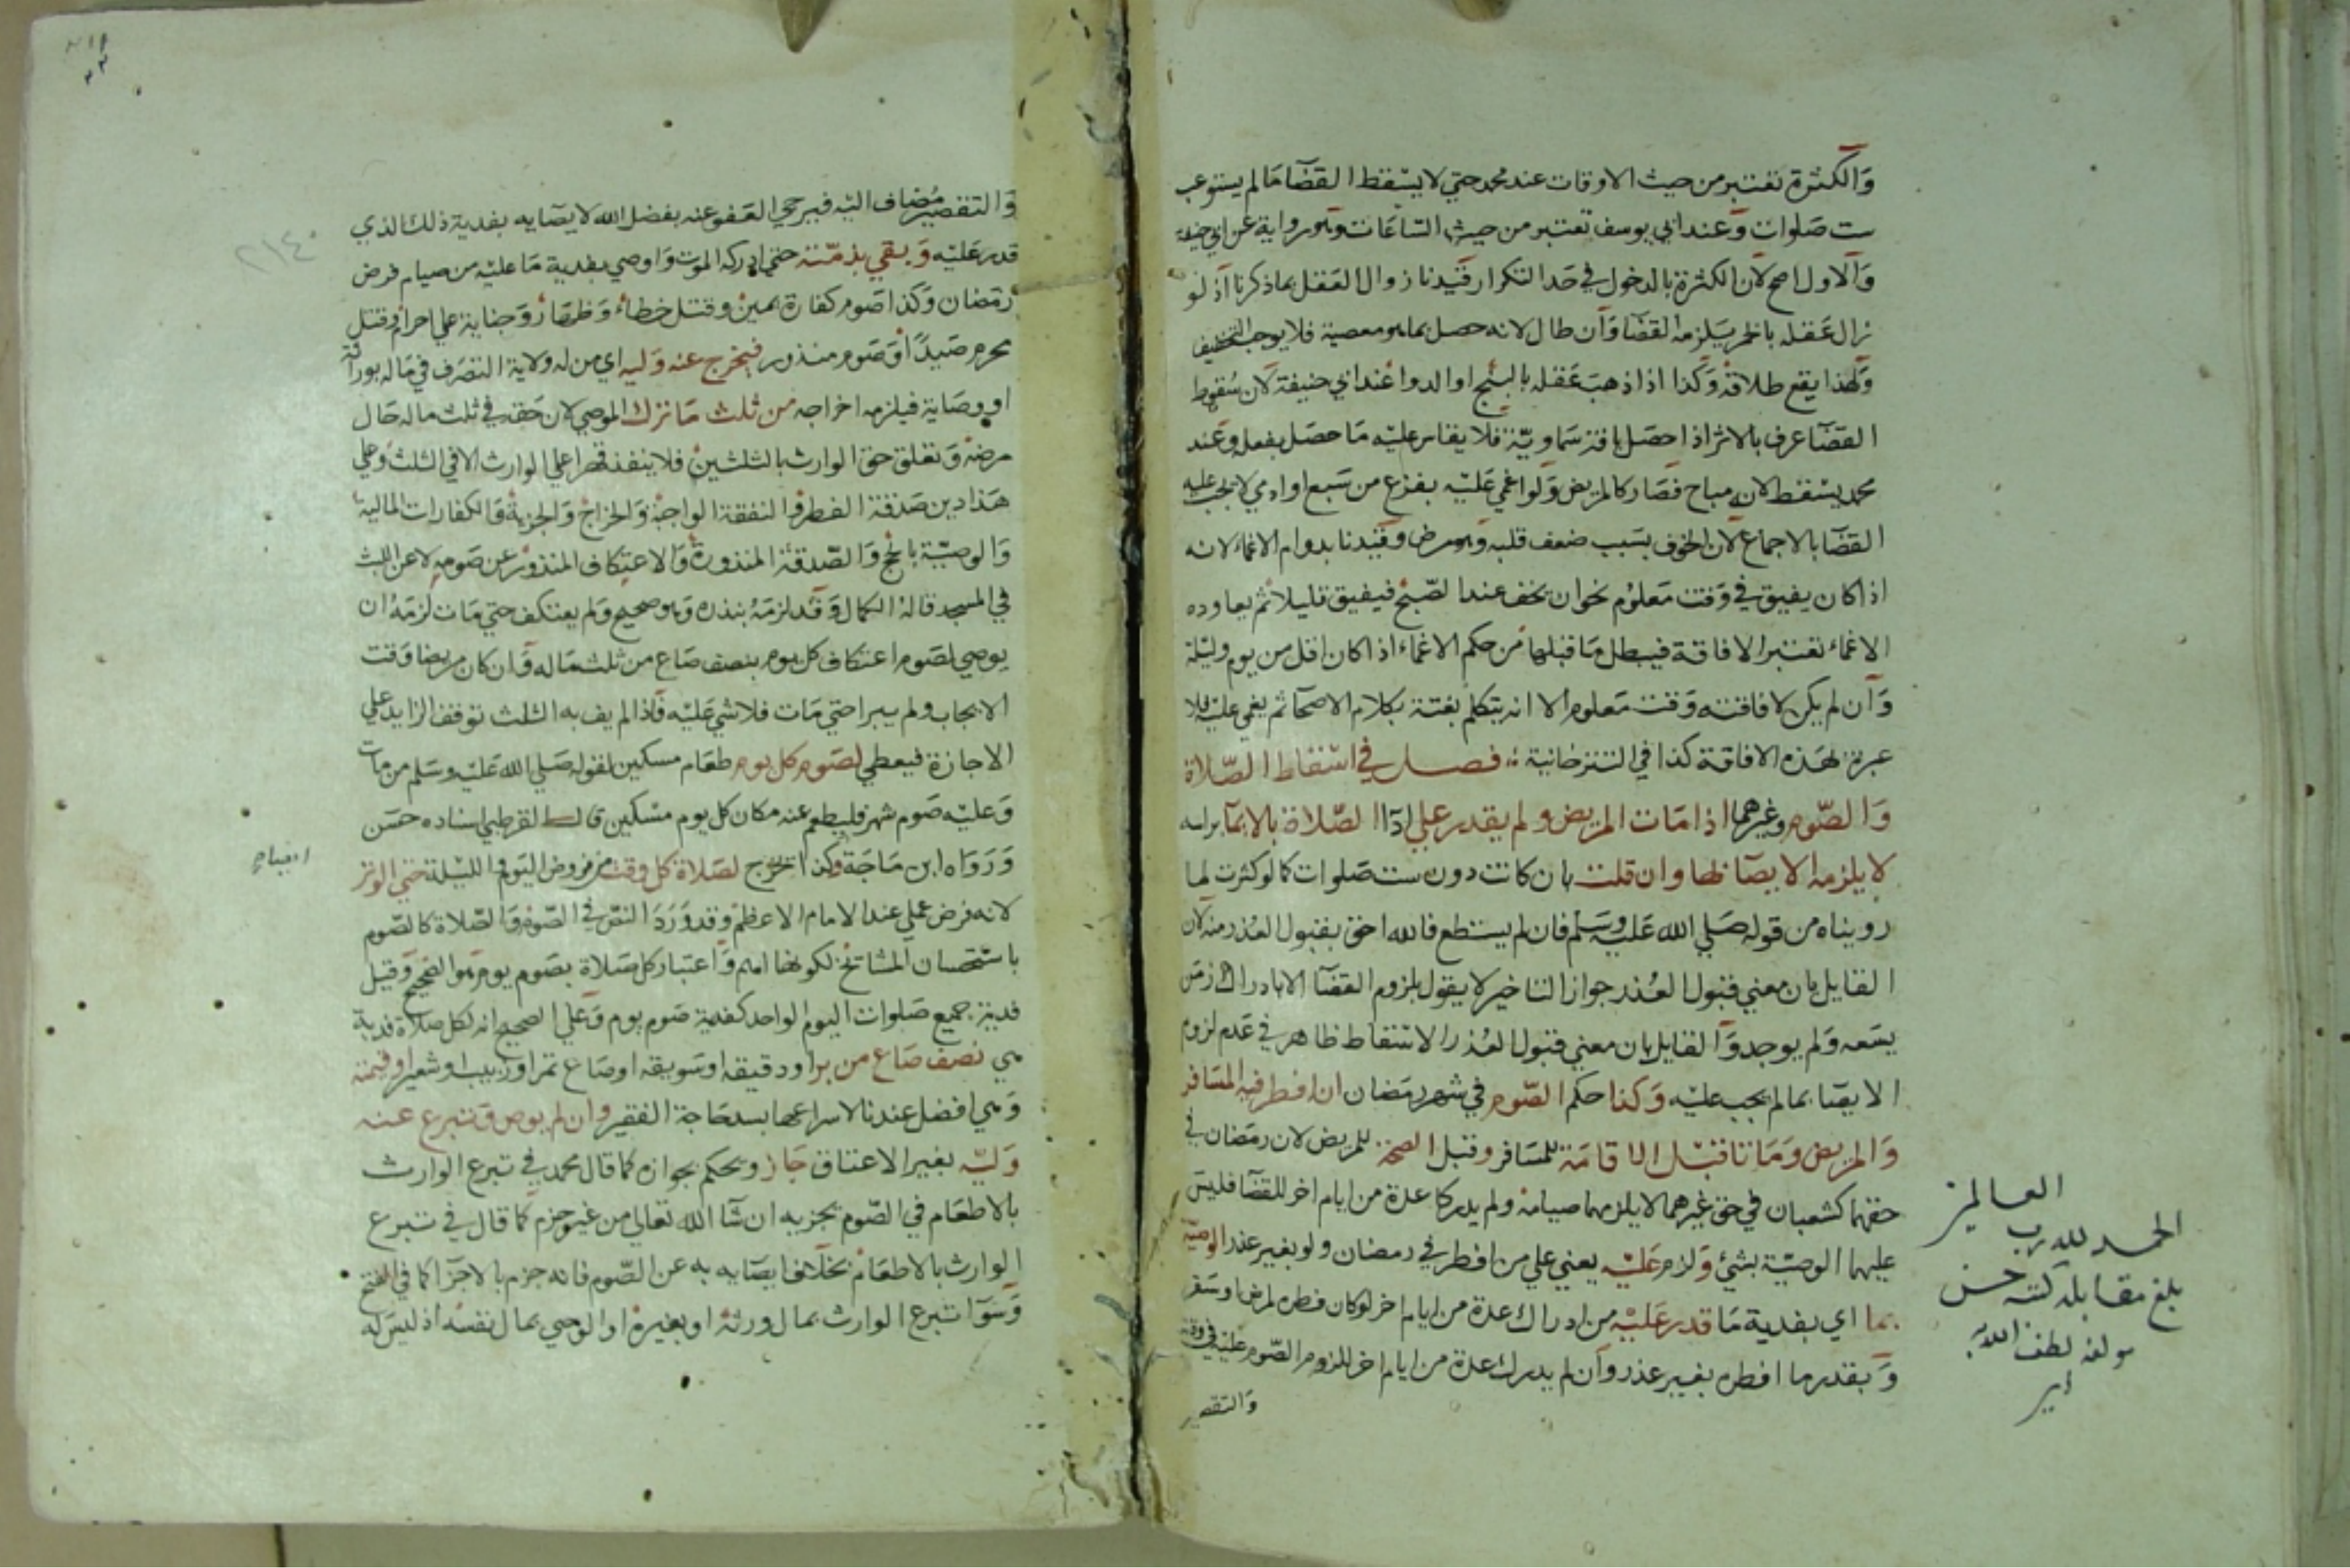 وَالكثرة تعتبر من حيث الاوقات عند محمد حتي لا يسقط القضآ مَا لم يستوعب
ست صَلوات وَعند ابي يوسف تعتبر من حيث السَّاعَات وَهو رواية عن ابي حنيفة
وَالاول اصح لان الكثرة بالدخول في حَد التكرار قيّدنا زوال العَقل بما ذكرنا اذ لو
زال عَقله بالخمر يَلزمه القضآ وَان طال لانه حصل بما هو معصية فلا يوجب التخفيف
وَلهذا يقع طلاقه وَكذا اذا ذهبَ عَقله بالبنج او الدوا عند ابي حنيفة لان سُقوط
القضآ عرف بالاثر اذا حصَل بافة سَماويّة فلا يقاس عليْه مَا حصَل بفعله وَعند
محمد يسْقط لانه مباح فصَار كالمريض وَلو اغمي عَليْه بفزع من سَبع او ادمي لا يجب عليه
القضآ بالاجماع لان الخوف بسَبب ضعف قلبه وَهو مرض وقيّدنا بدوام الاغماء لانه
اذا كان يفيق في وَقت مَعلوم نحو ان يخف عند الصّبح فيفيق قليلا ثم يعاوده
الاغماء تعتبر الافاقة فيبطل مَا قبلها من حكم الاغماء اذا كان اقل من يوم وليْلة
وَان لم يكن لافاقته وَقت مَعلوم الا انه يتكلم بغتة بكلام الاصحآ ثم يغمي عليْه فلا
عبرة بهذه الافاقة كذا في التترخانية فصل في اسْقاط الصّلاة
وَالصّوم وغيرهما اذا مَات المريض ولم يقدر علي ادآ الصّلاة بالايمآ براسه
لا يلزمه الايصَآ بها وان قلت بان كانت دون ست صَلوات كما لو كثرت لما
رويناه من قوله صَلي الله عَليْه وسَلم فان لم يستطع فالله احق بقبول العُذر منه لان
القايل بان معني قبول العُذر جواز التاخير لا يقول بلزوم القضآ الا بادراك زمَن
يسَعه وَلم يوجد وَالقايل بان معني قبول العُذر الاسْقاط ظاهر في عَدم لزوم
الايصَا بما لم يجب عليْه وَكذا حكم الصّوم في شهر رمَضان ان افطر فيه المسَافر
وَالمريض وَمَاتا قبْل الاقامَة للمسَافر وقبل الصحة للمريض لان رمَضان في
حقهما كشعبان في حق غيرهما لا يلزمهما صيامه ولم يدركا عدة من ايام اخر للقضآ فليسَ
عليهما الوصيّة بشئ وَلزم عَليْه يعني علي من افطر في رمضان ولو بغير عذر الوصيّة
بما اي بفدية مَا قدر عَليْه من ادراك عدة من ايام اخر لو كان فطره لمرض او سَفر
وَبقدر ما افطره بغيْر عذر وَان لم يدرك عدة من ايام اخر للزوم الصّوم عليْه في وقته
وَالتقصير
العالمين
الحمد لله رب
بلغ مقابلة كتبه حسن
مولفه لطف الله
وَالتقصير مُضاف اليْه فيرجي العَفو عنه بفضل الله لايصَايه بفدية ذلك الذي
قدر عَليْه وَبقي بذمّته حتي ادركه الموت وَاوصي بفدية مَا عليْه من صيام فرض
رمَضان وَكذا صَوم كفارة يمين وقتل خطاء وَظهَار وَجناية علي احرام وقتل
محرم صَيدًا وَصَوم منذور فيخرج عنه وَليه اي من له ولاية التصَرف في مَاله بوراثة
او وصَاية فيلزمه اخراجه من ثلث مَا ترك الموصي لان حَقه في ثلث ماله حَال
مرضه وَتعلق حق الوارث بالثلثين فلا ينفذ قهرا علي الوارث الا في الثلث وَعلي
هَذا دين صَدقة الفطر والنفقة الواجبة وَالخراج وَالجزية وَالكفارات المالية
وَالوصيّة بالحج وَالصّدقة المنذورة وَالاعتكاف المنذور عن صَومه لا عن اللبث
في المسجد قاله الكمال وَقد لزمَه بنذره وَهو صحيح وَلم يعتكف حتي مَات لزمَه ان
يوصي لصَوم اعتكاف كل يوم بنصف صَاع من ثلث مَاله وَان كان مريضا وَقت
الايجاب ولم يبرا حتي مَات فلا شي عَليْه فاذا لم يف به الثلث توقف الزايد علي
الاجازة فيعطي لصَوم كل يوم طعَام مسكين لقوله صَلي الله عَليْه وسَلم من مات
وَعليْه صَوم شهر فليطعم عنه مكان كل يوم مسْكين قال القرطبي اسناده حسَن
وَرَوَاه ابن مَاجَة وكذا اخرج لصَلاة كل وقت من فروض اليَوم والليْلة حتي الوتر
لانه فرض عملي عند الامام الاعظم وقد وَرَدَ النصّ في الصّوم وَالصّلاة كالصّوم
باسْتحسان المشائخ لكونها اهم وَاعتبار كل صَلاة بصَوم يوم هو الصحيح وَقيل
فدية جميع صَلوات اليوم الواحد كفدية صَوم يوم وَعلي الصحيح انه لكل صلاة فدية
هي نصف صَاع من بر او دقيقه او سَويقه او صَاع تمر او زبيب او شعير او قيمته
وَهي افضل عندنا لاسراعها بسد حَاجة الفقير وان لم يوص وَتبرع عنه
وَليّه بغير الاعتاق جَاز ويحكم بجوازه كما قال محمد في تبرع الوارث
بالاطعَام في الصّوم يجزيه ان شآ الله تعالي من غير جزم كما قال في تبرع
الوارث بالاطعَام بخلاف ايصَايه به عن الصّوم فانه جزم بالاجزآ كما في الفتح
وَسَوآ تبرع الوارث بمال ورثه او بغيره او الوصي بمال نفسه اذ ليسَ له
٢١٤